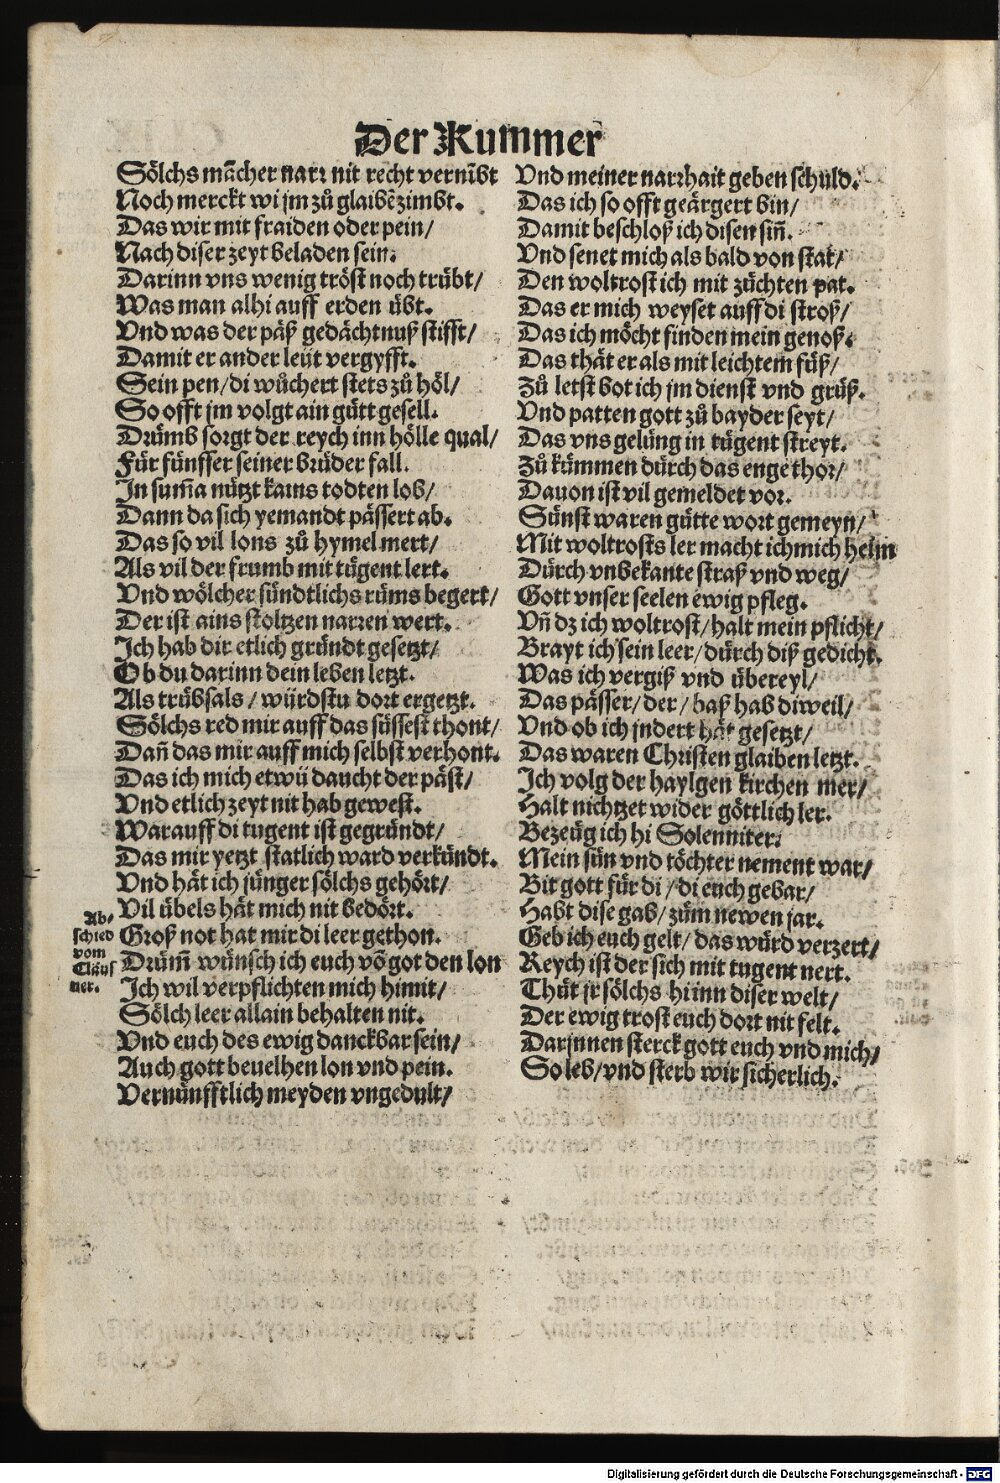 Der Kummer
Sölchs mãcher narꝛ nit recht vernĩbt
Noch merckt wi jm zů glaibẽ zimbt.
Das wir mit fraiden oder pein/
Nach diser zeyt beladen sein.
Darinn vns wenig tröst noch trübt/
Was man alhi auff erden übt.
Vnd was der päß gedächtnuß stifft/
Damit er ander leüt vergyfft.
Sein pen/ di wůchert stets zů höl/
So offt jm volgt ain gütt gesell.
Drümb sorgt der reych inn hölle qual/
Für fünffer seiner brüder fall.
In sum̃a nützt kains todten lob/
Dann da sich yemandt pässert ab.
Das so vil lons zů hymel mert/
Als vil der frumb mit tügent lert.
Vnd wölcher sündtlichs rüms begert/
Der ist ains stoltzen narꝛen wert.
Ich hab dir etlich gründt gesetzt/
Ob du darinn dein leben letzt.
Als trübsals/ würdstu dort ergetzt.
Sölchs red mir auff das süssest thont/
Dañ das mir auff mich selbst verhont.
Das ich mich etwü daucht der päst/
Vnd etlich zeyt nit hab gewest.
Warauff di tugent ist gegründt/
Das mir yetzt statlich ward verkündt.
Vnd hät ich jünger sölchs gehört/
Vil übels hät mich nit bedört.
Groß not hat mir di leer gethon.
Drüm̃ wünsch ich euch võ got den lon
Ich wil verpflichten mich himit/
Sölch leer allain behalten nit.
Vnd euch des ewig danckbar sein/
Auch gott beuelhen lon vnd pein.
Vernünfftlich meyden vngedult/
Ab/
schied
vom
Claus
ner.
Vnd meiner narꝛhait geben schuld.
Das ich so offt geärgert bin/
Damit beschloß ich disen siñ.
Vnd senet mich als bald von stat/
Den woltrost ich mit züchten pat.
Das er mich weyset auff di stroß/
Das ich möcht finden mein genoß.
Das thät er als mit leichtem füß/
Zů letst bot ich jm dienst vnd grüß.
Vnd patten gott zů bayder seyt/
Das vns gelüng in tügent streyt.
Zů kümmen dürch das enge thor/
Dauon ist vil gemeldet vor.
Sünst waren gütte wort gemeyn/
Mit woltrosts ler macht ich mich heim
Dürch vnbekante straß vnd weg/
Gott vnser seelen ewig pfleg.
Vñ dz ich woltrost/ halt mein pflicht/
Brayt ich sein leer/ dürch diß gedicht.
Was ich vergiß vnd übereyl/
Das pässer/ der/ baß hab diweil/
Vnd ob ich jndert hät gesetzt/
Das waren Christen glaiben letzt.
Ich volg der haylgen kirchen mer/
Halt nichtzet wider göttlich ler.
Bezeüg ich hi Solenniter.
Mein sün vnd töchter nement war/
Bit gott für di/ di euch gebar/
Habt dise gab/ züm newen jar.
Geb ich euch gelt/ das würd verzert/
Reych ist der sich mit tugent nert.
Thüt jr sölchs hi inn diser welt/
Der ewig trost euch dort nit felt.
Darjnnen sterck gott euch vnd mich/
So leb/ vnd sterb wir sicherlich.
Digitalisierung gefördert durch die Deutsche Forschungsgemeinschaft - DFG